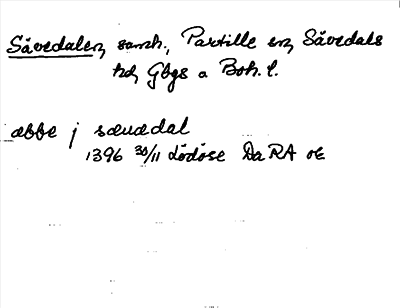 Sävedalen, samh., Partille sn, Sävedals
hd, Gbgs o Boh. l.
æbbe j sæuædal
1396 30/11 Lödöse DaRA or